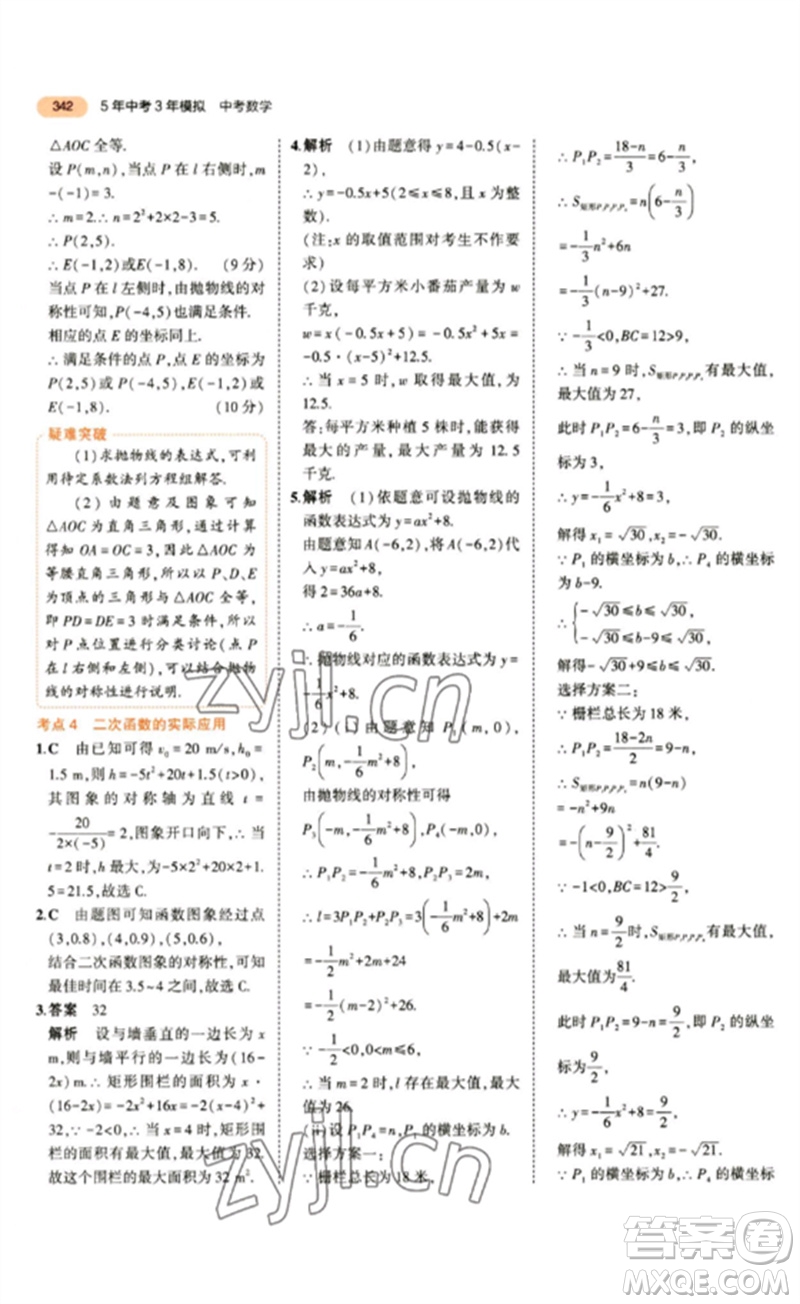 342 5年中考3年模拟 中考数学
△AOC全等.
设P(m,n),当点P在l右侧时,m
-(-1)=3.
∴m=2.∴n=2²+2×2-3=5.
∴P(2,5).
∴E(-1,2)或E(-1,8). (9分)
当点P在l左侧时,由抛物线的对
称性可知,P(-4,5)也满足条件.
相应的点E的坐标同上.
∴满足条件的点P,点E的坐标为
P(2,5)或P(-4,5),E(-1,2)或
E(-1,8). (10分)
疑难突破
(1)求抛物线的表达式,可利
用待定系数法列方程组解答.
(2)由题意及图象可知
△AOC为直角三角形,通过计算
得知OA=OC=3,因此△AOC为
等腰直角三角形,所以以P、D、E
为顶点的三角形与△AOC全等,
即PD=DE=3时满足题意,所以
对P点位置进行分类讨论(点P
在l右侧和左侧),可以结合抛物
线的对称性进行说明.
考点4 二次函数的实际应用
1.C 由已知可得v₀=20 m/s,h₀=
1.5 m,则h=-5t²+20t+1.5(t>0),
其图象的对称轴为直线t=
-20/(2×(-5))=2,图象开口向下,∴当
t=2时,h最大,为-5×2²+20×2+1.
5=21.5,故选C.
2.C 由题图可知函数图象经过点
(3,0.8),(4,0.9),(5,0.6),
结合二次函数图象的对称性,可知
最佳时间在3.5~4之间,故选C.
3.答案 32
解析 设与墙垂直的一边长为x
m,则与墙平行的一边长为(16-
2x)m.∴矩形围栏的面积为x·
(16-2x)=-2x²+16x=-2(x-4)²+
32,∵-2<0,∴当x=4时,矩形围
栏的面积有最大值,最大值为32.
故这个围栏的最大面积为32 m².
4.解析 (1)由题意得y=4-0.5(x-
2),
∴y=-0.5x+5(2≤x≤8,且x为整
数).
(注:x的取值范围对考生不作要
求)
(2)设每平方米小番茄产量为w
千克,
w=x(-0.5x+5)=-0.5x²+5x=
-0.5·(x-5)²+12.5.
∴当x=5时,w取最大值,为
12.5.
答:每平方米种植5株时,能获得
最大的产量,最大产量为12.5
千克.
5.解析 (1)依题意可设抛物线的
函数表达式为y=ax²+8.
由题意知A(-6,2),将A(-6,2)代
入y=ax²+8,
得2=36a+8,
∴a=-1/6.
∴抛物线对应的函数表达式为y=
-1/6x²+8.
(2)(i)由题意知P₁(m,0),
P₂(m,-1/6m²+8),
由抛物线的对称性可得
P₃(-m,-1/6m²+8),P₄(-m,0),
∴P₁P₂=-1/6m²+8,P₂P₃=2m
∴l=3P₁P₂+P₂P₃=3(-1/6m²+8)+2m
=-1/2m²+2m+24
=-1/2(m-2)²+26.
∵-1/2<0,0<m≤6,
∴当m=2时,l存在最大值,最大
值为26.
(ii)设P₁P₄=n,P₁的横坐标为b,
选择方案一:
∵栅栏总长为18米,
∴P₁P₂=(18-n)/3=6-n/3,
∴S矩形P₁P₂P₃P₄=n(6-n/3)
=-1/3n²+6n
=-1/3(n-9)²+27.
∵-1/3<0,BC=12>9,
∴当n=9时,S矩形P₁P₂P₃P₄有最大值,
最大值为27,
此时P₁P₂=6-n/3=3,即P₂的纵坐
标为3,
∴y=-1/6x²+8=3,
解得x₁=√30,x₂=-√30.
∵P₁的横坐标为b,∴P₄的横坐标
为b-9.
∴{-√30≤b≤√30,
-√30≤b-9≤√30,
解得-√30+9≤b≤√30.
选择方案二:
∵栅栏总长为18米,
∴P₁P₂=(18-2n)/2=9-n,
∴S矩形P₁P₂P₃P₄=n(9-n)
=-n²+9n
=-(n-9/2)²+81/4.
∵-1<0,BC=12>9/2,
∴当n=9/2时,S矩形P₁P₂P₃P₄有最大值,
最大值为81/4.
此时P₁P₂=9-n=9/2,即P₂的纵坐
标为9/2,
∴y=-1/6x²+8=9/2,
解得x₁=√21,x₂=-√21.
∵P₁的横坐标为b,∴P₄的横坐标
zyjl.cn
zyjl.cn
答案圈
MXQE.COM